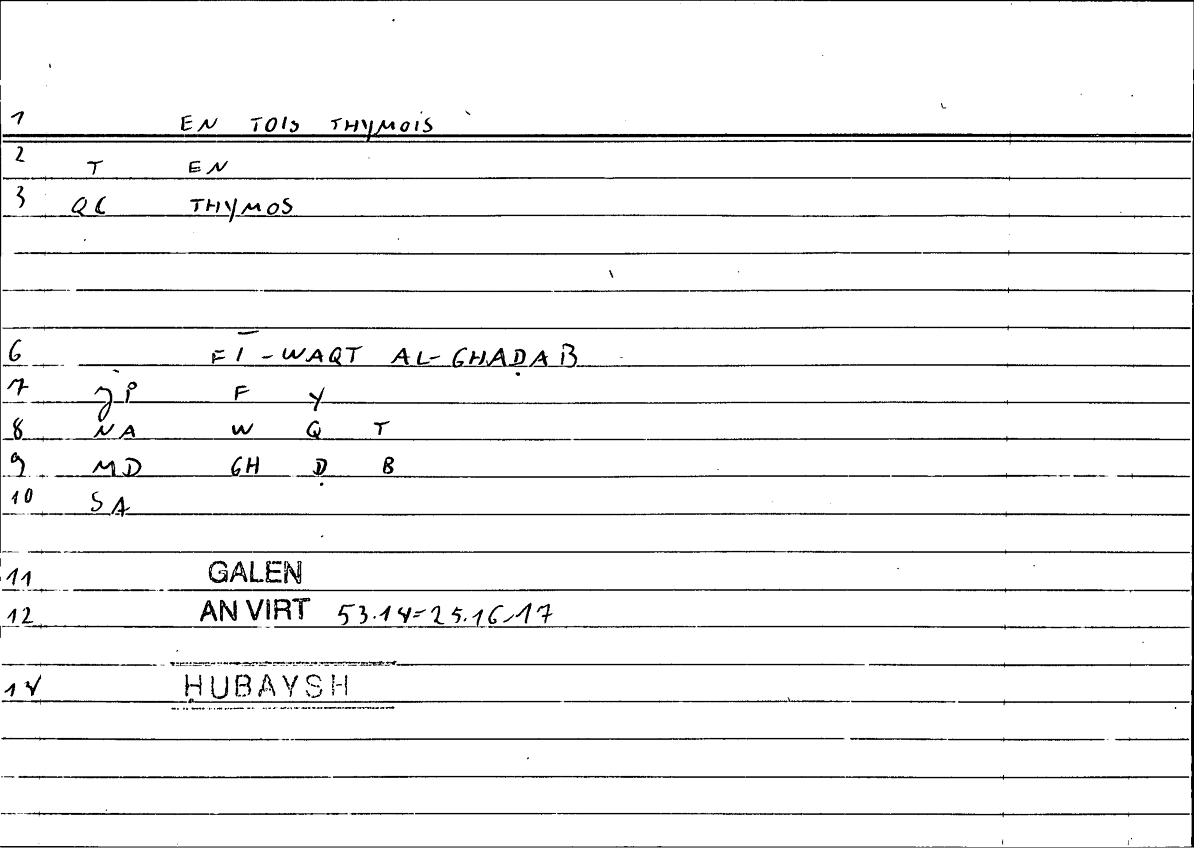 1 EN TOIS THYMOIS
2 T EN
3 QC THYMOS
6 FĪ-WAQT AL-GHAḌAB
7 JP F Y
8 NA W Q T
9 MD GH Ḍ B
10 SA
11 GALEN
12 AN VIRT 53.14=25.16-17
14 ḤUBAYSH